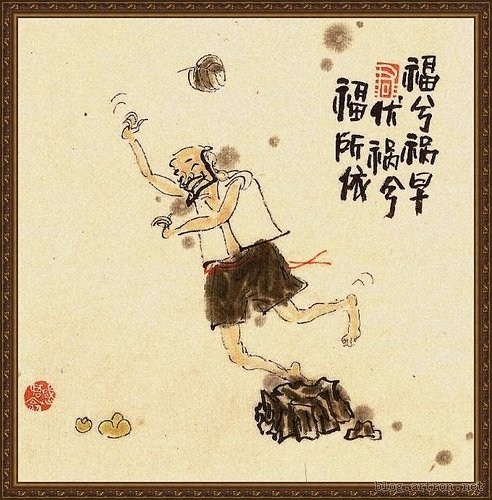 福兮祸早
伏祸兮
福所依
blog.artron.net